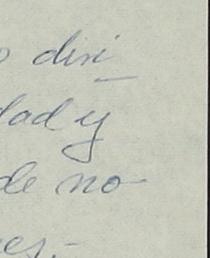 o diri-
dad y
de no-
es.-